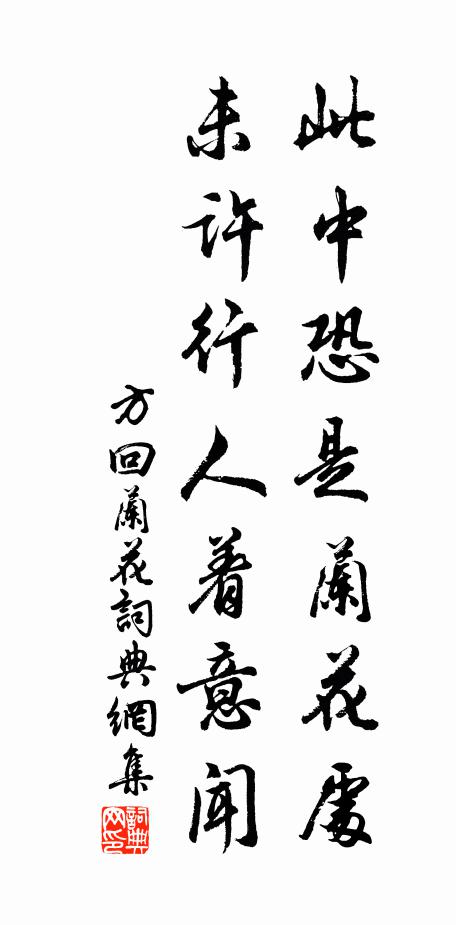 此中恐是蘭花處
未許行人着意聞
方回蘭花詞典網集
詞典网印